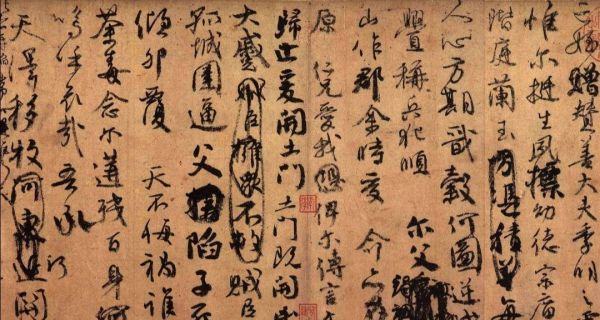 姪贈贊善大夫季明之
惟爾挺生夙標幼德宗廟
階庭蘭玉每
人心方期戩穀何圖逆
釁稱兵犯順爾父
山作郡余時受命
原仁兄愛我俾爾傳言
歸止爰開土門土門既開
大蹙賊臣擁衆不救賊臣
孤城圍逼父陷子
傾卵覆天不悔禍誰
荼毒念爾遘殘百身何
嗚呼哀哉吾承
天澤移牧河東近關